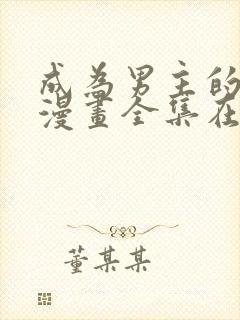 成為男主的
漫畫全集在
董某某